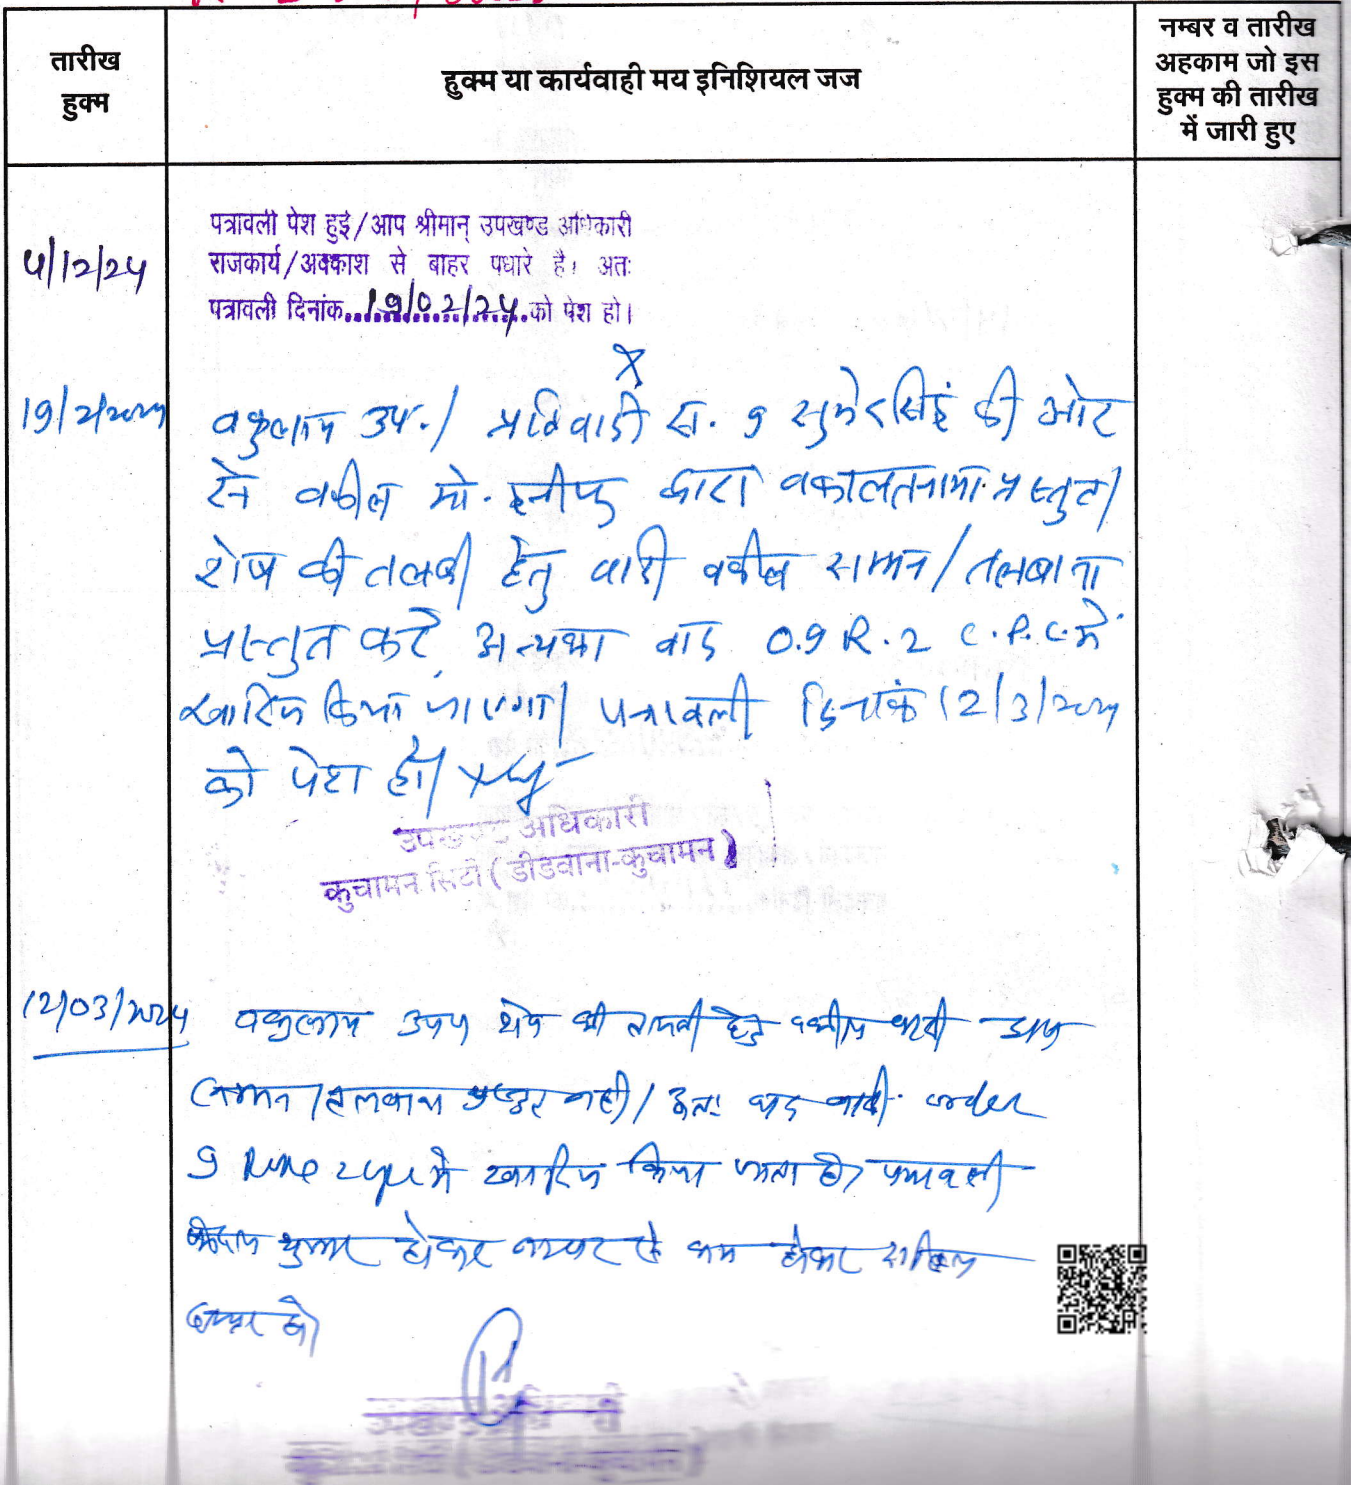 तारीख
हुक्म
हुक्म या कार्यवाही मय इनिशियल जज
नम्बर व तारीख
अहकाम जो इस
हुक्म की तारीख
में जारी हुए
पत्रावली पेश हुई/आप श्रीमान् उपखण्ड अधिकारी
4/12/24 राजकार्य/अवकाश से बाहर पधारे है। अतः
पत्रावली दिनांक 19/02/24 को पेश हो।
19/2/2024 वकुलाय उप./ प्रतिवादी सं. 9 सुमेरसिंह की ओर
से वकील मो. हनीफ द्वारा वकालतनामा प्रस्तुत।
शेष की तलबी हेतु वादी वकील सम्मन/तलबाना
प्रस्तुत करे अन्यथा वाद O.9 R.2 C.P.C. में
खारिज किया जाएगा। पत्रावली दिनांक 12/3/2024
को पेश हो।
उपखण्ड अधिकारी
कुचामन सिटी (डीडवाना-कुचामन)
12/03/2024 वकुलाय उप शेष की तलबी हेतु वकील वादी द्वारा
सम्मन/तलबाना प्रस्तुत नहीं। अतः वाद वादी order
9 Rule 2 cpc में खारिज किया जाता है। पत्रावली
फैसल शुमार होकर नम्बर से कम होकर दाखिल
दफ्तर हो।